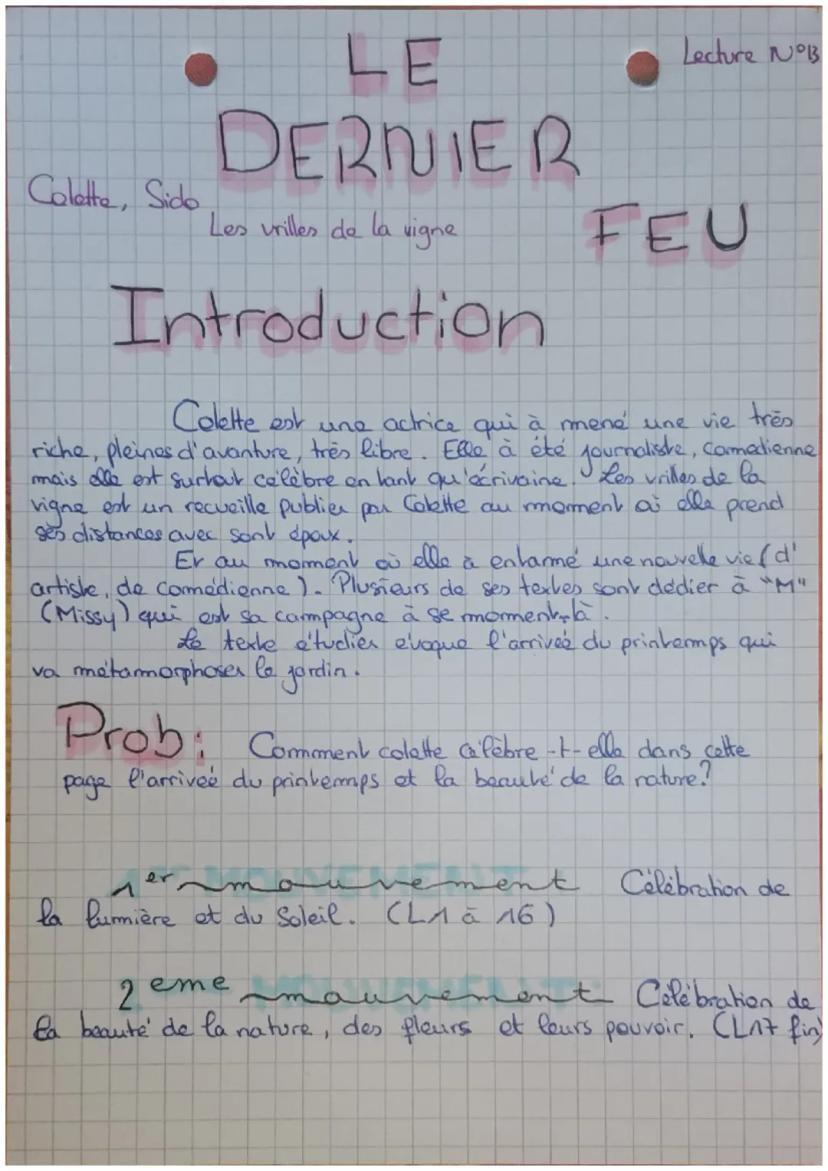 LE
Lecture N°13
DERNIER
Colette, Sido
Les vrilles de la vigne
FEU
Introduction
Colette est une actrice qui à mené une vie très
riche, pleines d'avanture, très libre. Elle à été journaliste, comedienne
mais elle est surtout célèbre en tant qu'écrivaine. Les vrilles de la
vigne est un recueille publier par Colette au moment où elle prend
ses distances avec sont époux.
Er au moment où elle a entamé une nouvelle vie (d'
artiste, de comédienne). Plusieurs de ses textes sont dédier à "M"
(Missy) qui est sa campagne à se moment-là.
Le texte étudier évoque l'arriveé du printemps qui
va métamorphoser le jardin.
Prob: Comment colette célèbre-t-elle dans cette
page l'arriveé du printemps et la beauté de la nature?
1er mouvement Célébration de
la lumière et du Soleil. (L1 à 16)
2eme mouvement Célébration de
la beauté de la nature, des fleurs et leurs pouvoir. (L17 fin)